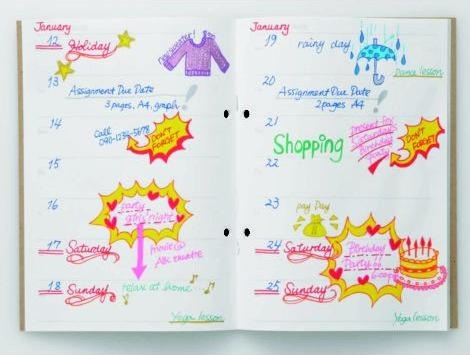 January
12 Holiday
13
Assignment Due Date
3 pages, A4, graph
!
14
Call
090-1234-5678
DON'T
FORGET
15
16
Party
girls' night
17 Saturday
movie@
ABC theatre
18 Sunday
relax at home...
Yoga lesson
January
19 rainy day
Dance lesson
20
Assignment Due Date
2 pages A4
!
21
Shopping
Present for
Saturday's
Birthday
Party
DON'T
FORGET
22
23
pay Day
24 Saturday
Birthday
Party
25 Sunday
Yoga lesson